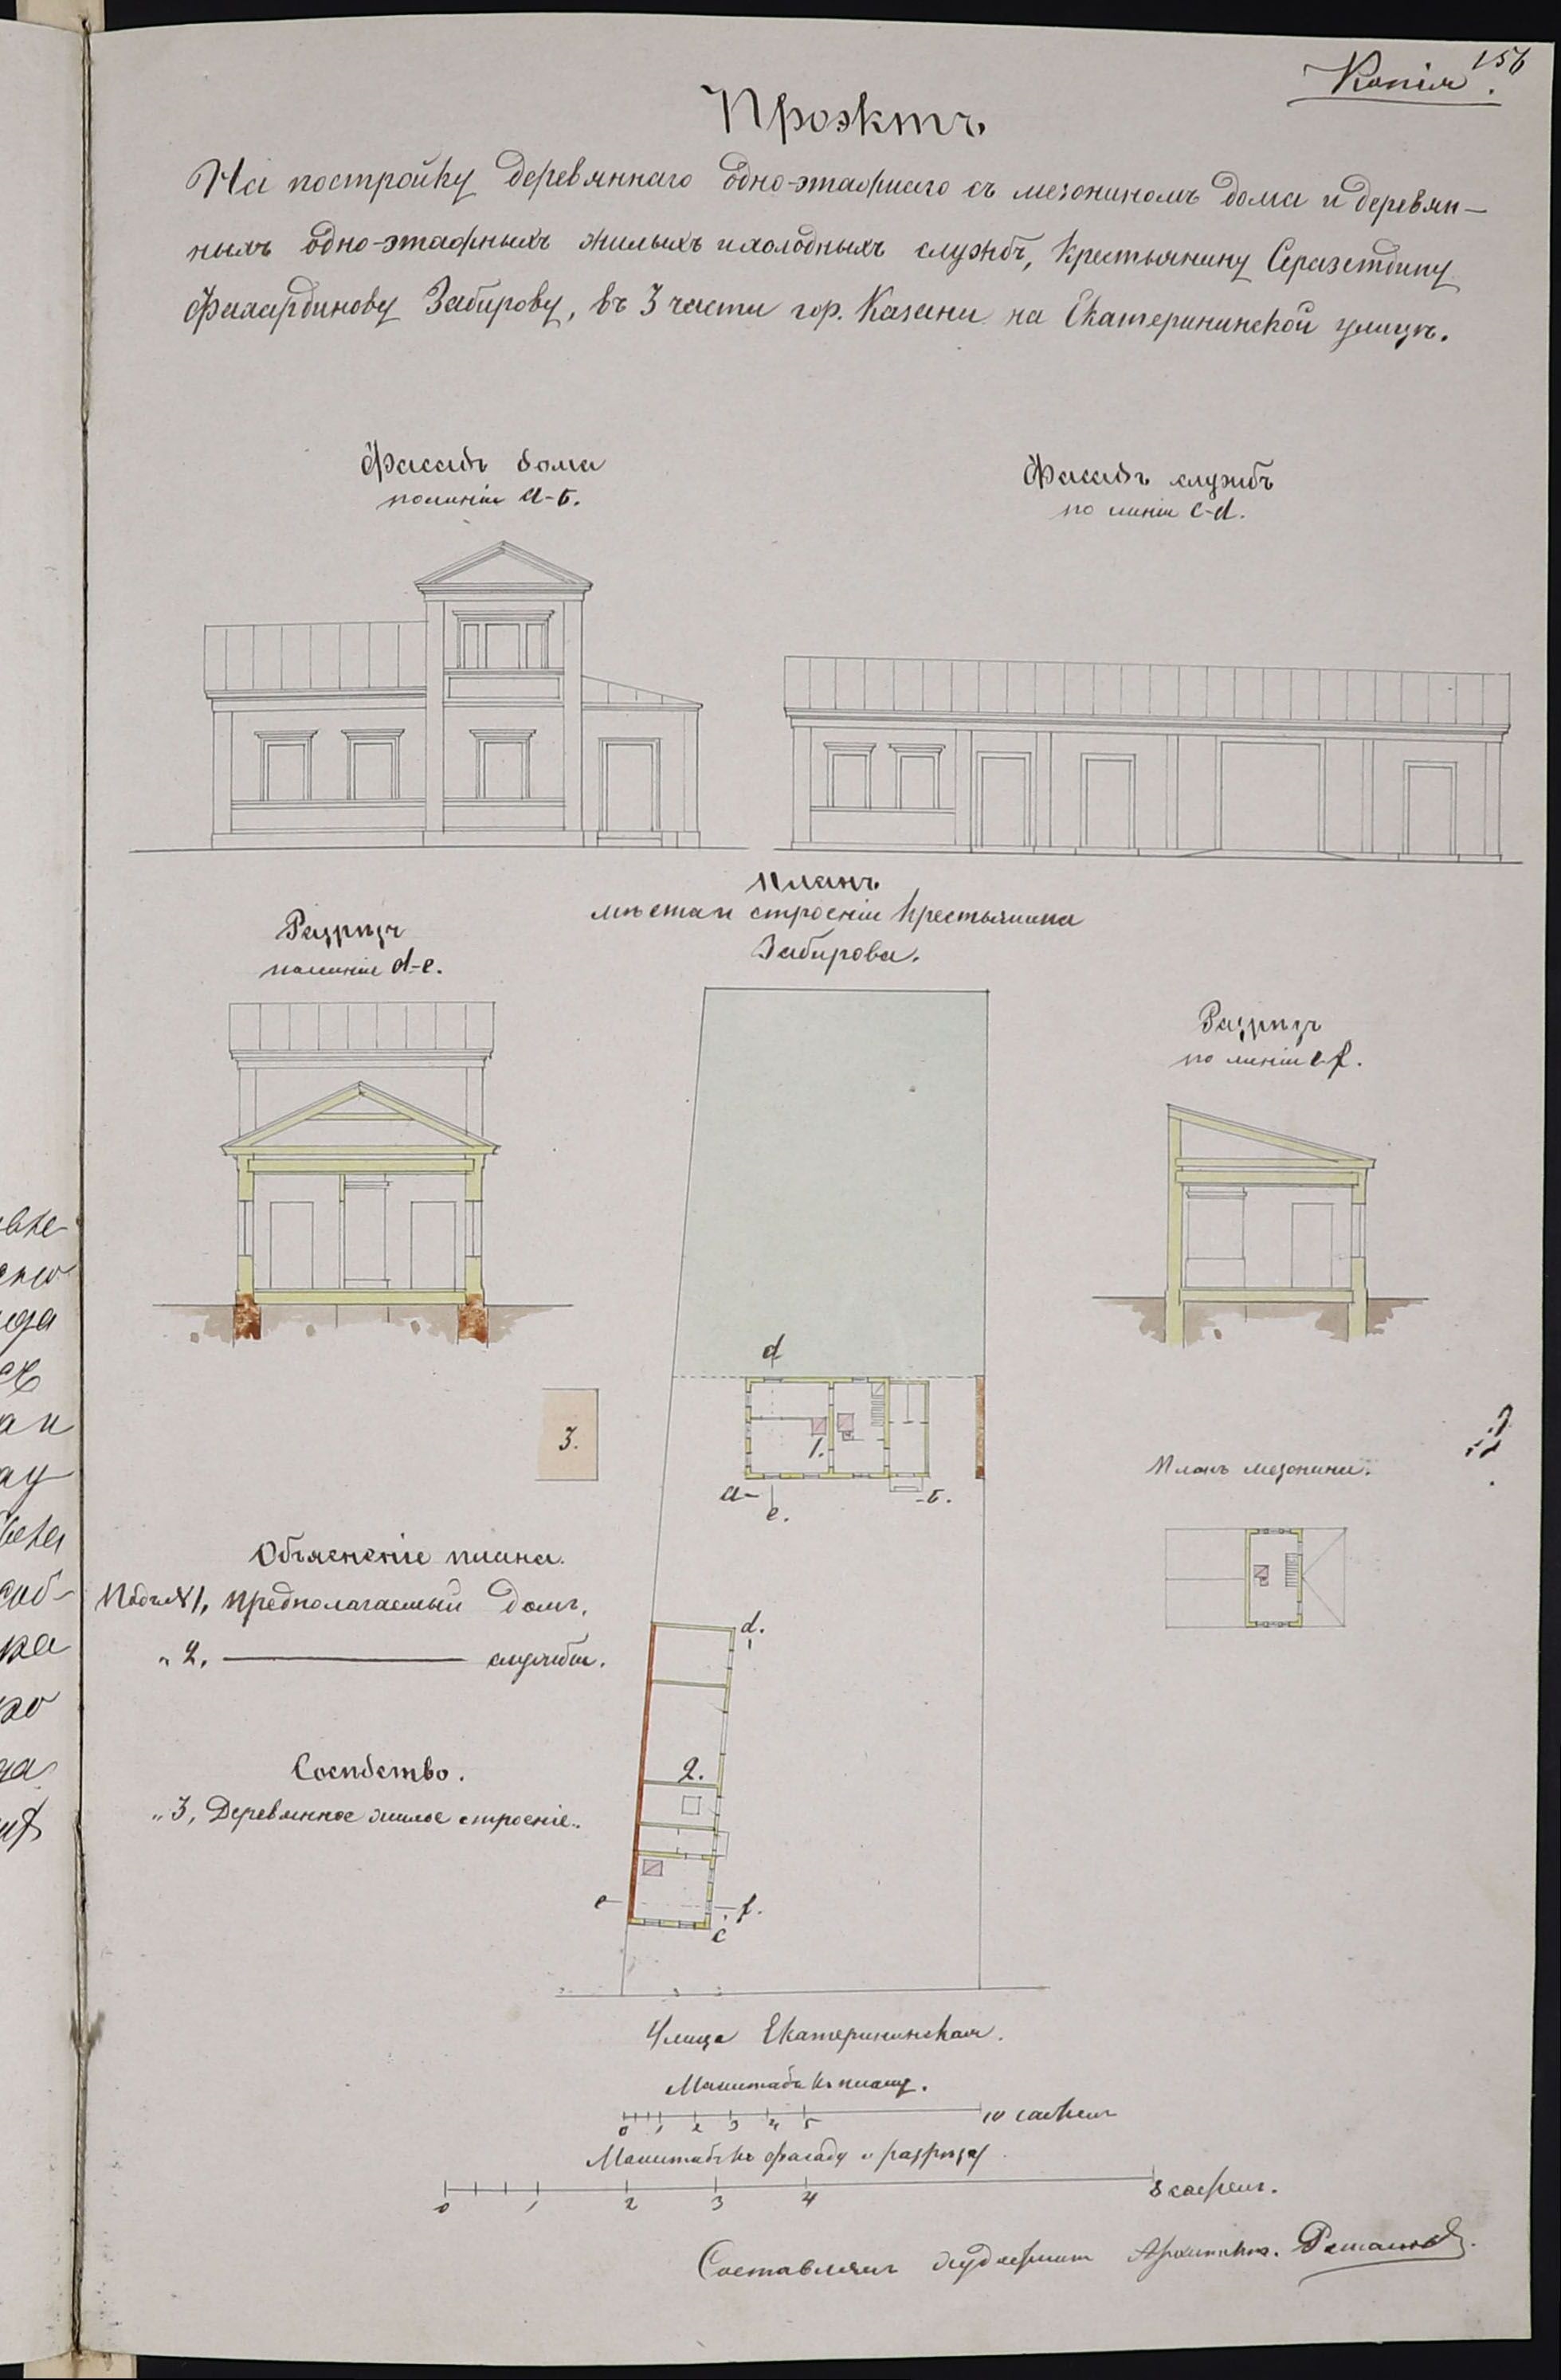 156
Копія.
Проэктъ
На постройку деревяннаго одно-этажнаго съ мезониномъ дома и деревян-
ныхъ одно-этажныхъ жилыхъ и холодныхъ службъ, крестьянину Серазетдину
Фахардинову Забирову, въ 3 части гор. Казани на Екатерининской улицѣ.
Фасадъ дома
по линіи a-б.
Фасадъ службъ
по линіи c-d.
Разрѣзъ
по линіи d-e.
Планъ
мѣста и строеній крестьянина
Забирова.
Разрѣзъ
по линіи e-f.
d
3.
1.
a-
-б.
e.
Планъ мезонина.
Объясненіе плана.
Подъ № 1, предполагаемый домъ.
„ 2, службы.
d.
2.
Сосѣдство.
„ 3, Деревянное жилое строеніе.
e
f.
c
Улица Екатерининская.
Масштабъ къ плану.
0 1 2 3 4 5 10 сажень
Масштабъ къ фасаду и разрѣзу
0 1 2 3 4 8 сажень.
Составлялъ Архитекторъ.